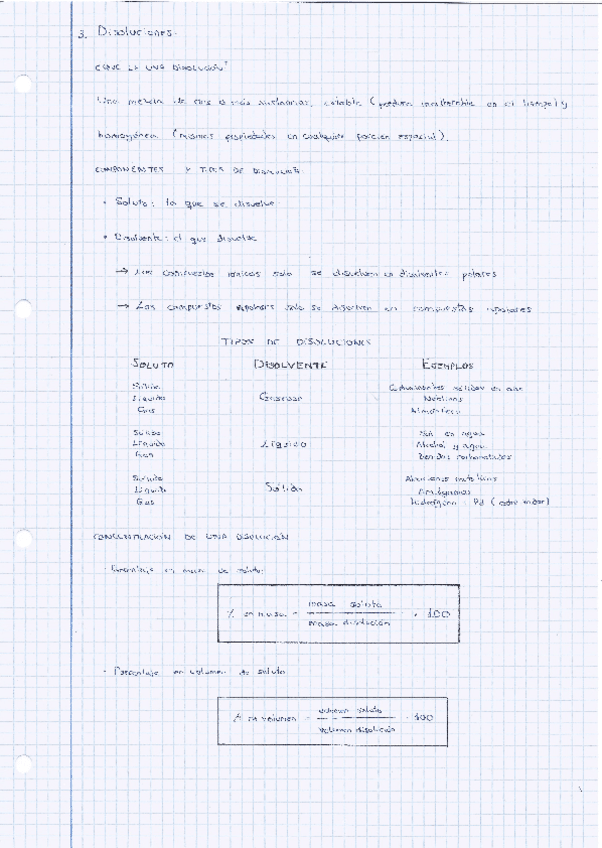 3. Disoluciones.
¿QUE ES UNA DISOLUCIÓN?
Una mezcla de dos o más sustancias, estable (perdura inalterable en el tiempo) y
homogénea (mismas propiedades en cualquier porción espacial).
COMPONENTES Y TIPOS DE DISOLUCIÓN
· Soluto: lo que se disuelve
· Disolvente: el que disuelve
→ Los compuestos iónicos solo se disuelven en disolventes polares
→ Los compuestos apolares solo se disuelven en compuestos apolares
TIPOS DE DISOLUCIONES
SOLUTO DISOLVENTE EJEMPLOS
Sólido
Líquido Gaseoso Nieblas
Gas
Sólido Sal en agua
Líquido Líquido Alcohol y agua
Gas Bebidas carbonatadas
Sólido Aleaciones metálicas
Líquido Sólido Amalgamas
Gas Hidrógeno Pd
CONCENTRACIÓN DE UNA DISOLUCIÓN
· Porcentaje en masa de soluto
% en masa = masa soluto / masa disolución · 100
· Porcentaje en volumen de soluto
% en volumen = volumen soluto / volumen disolución · 100